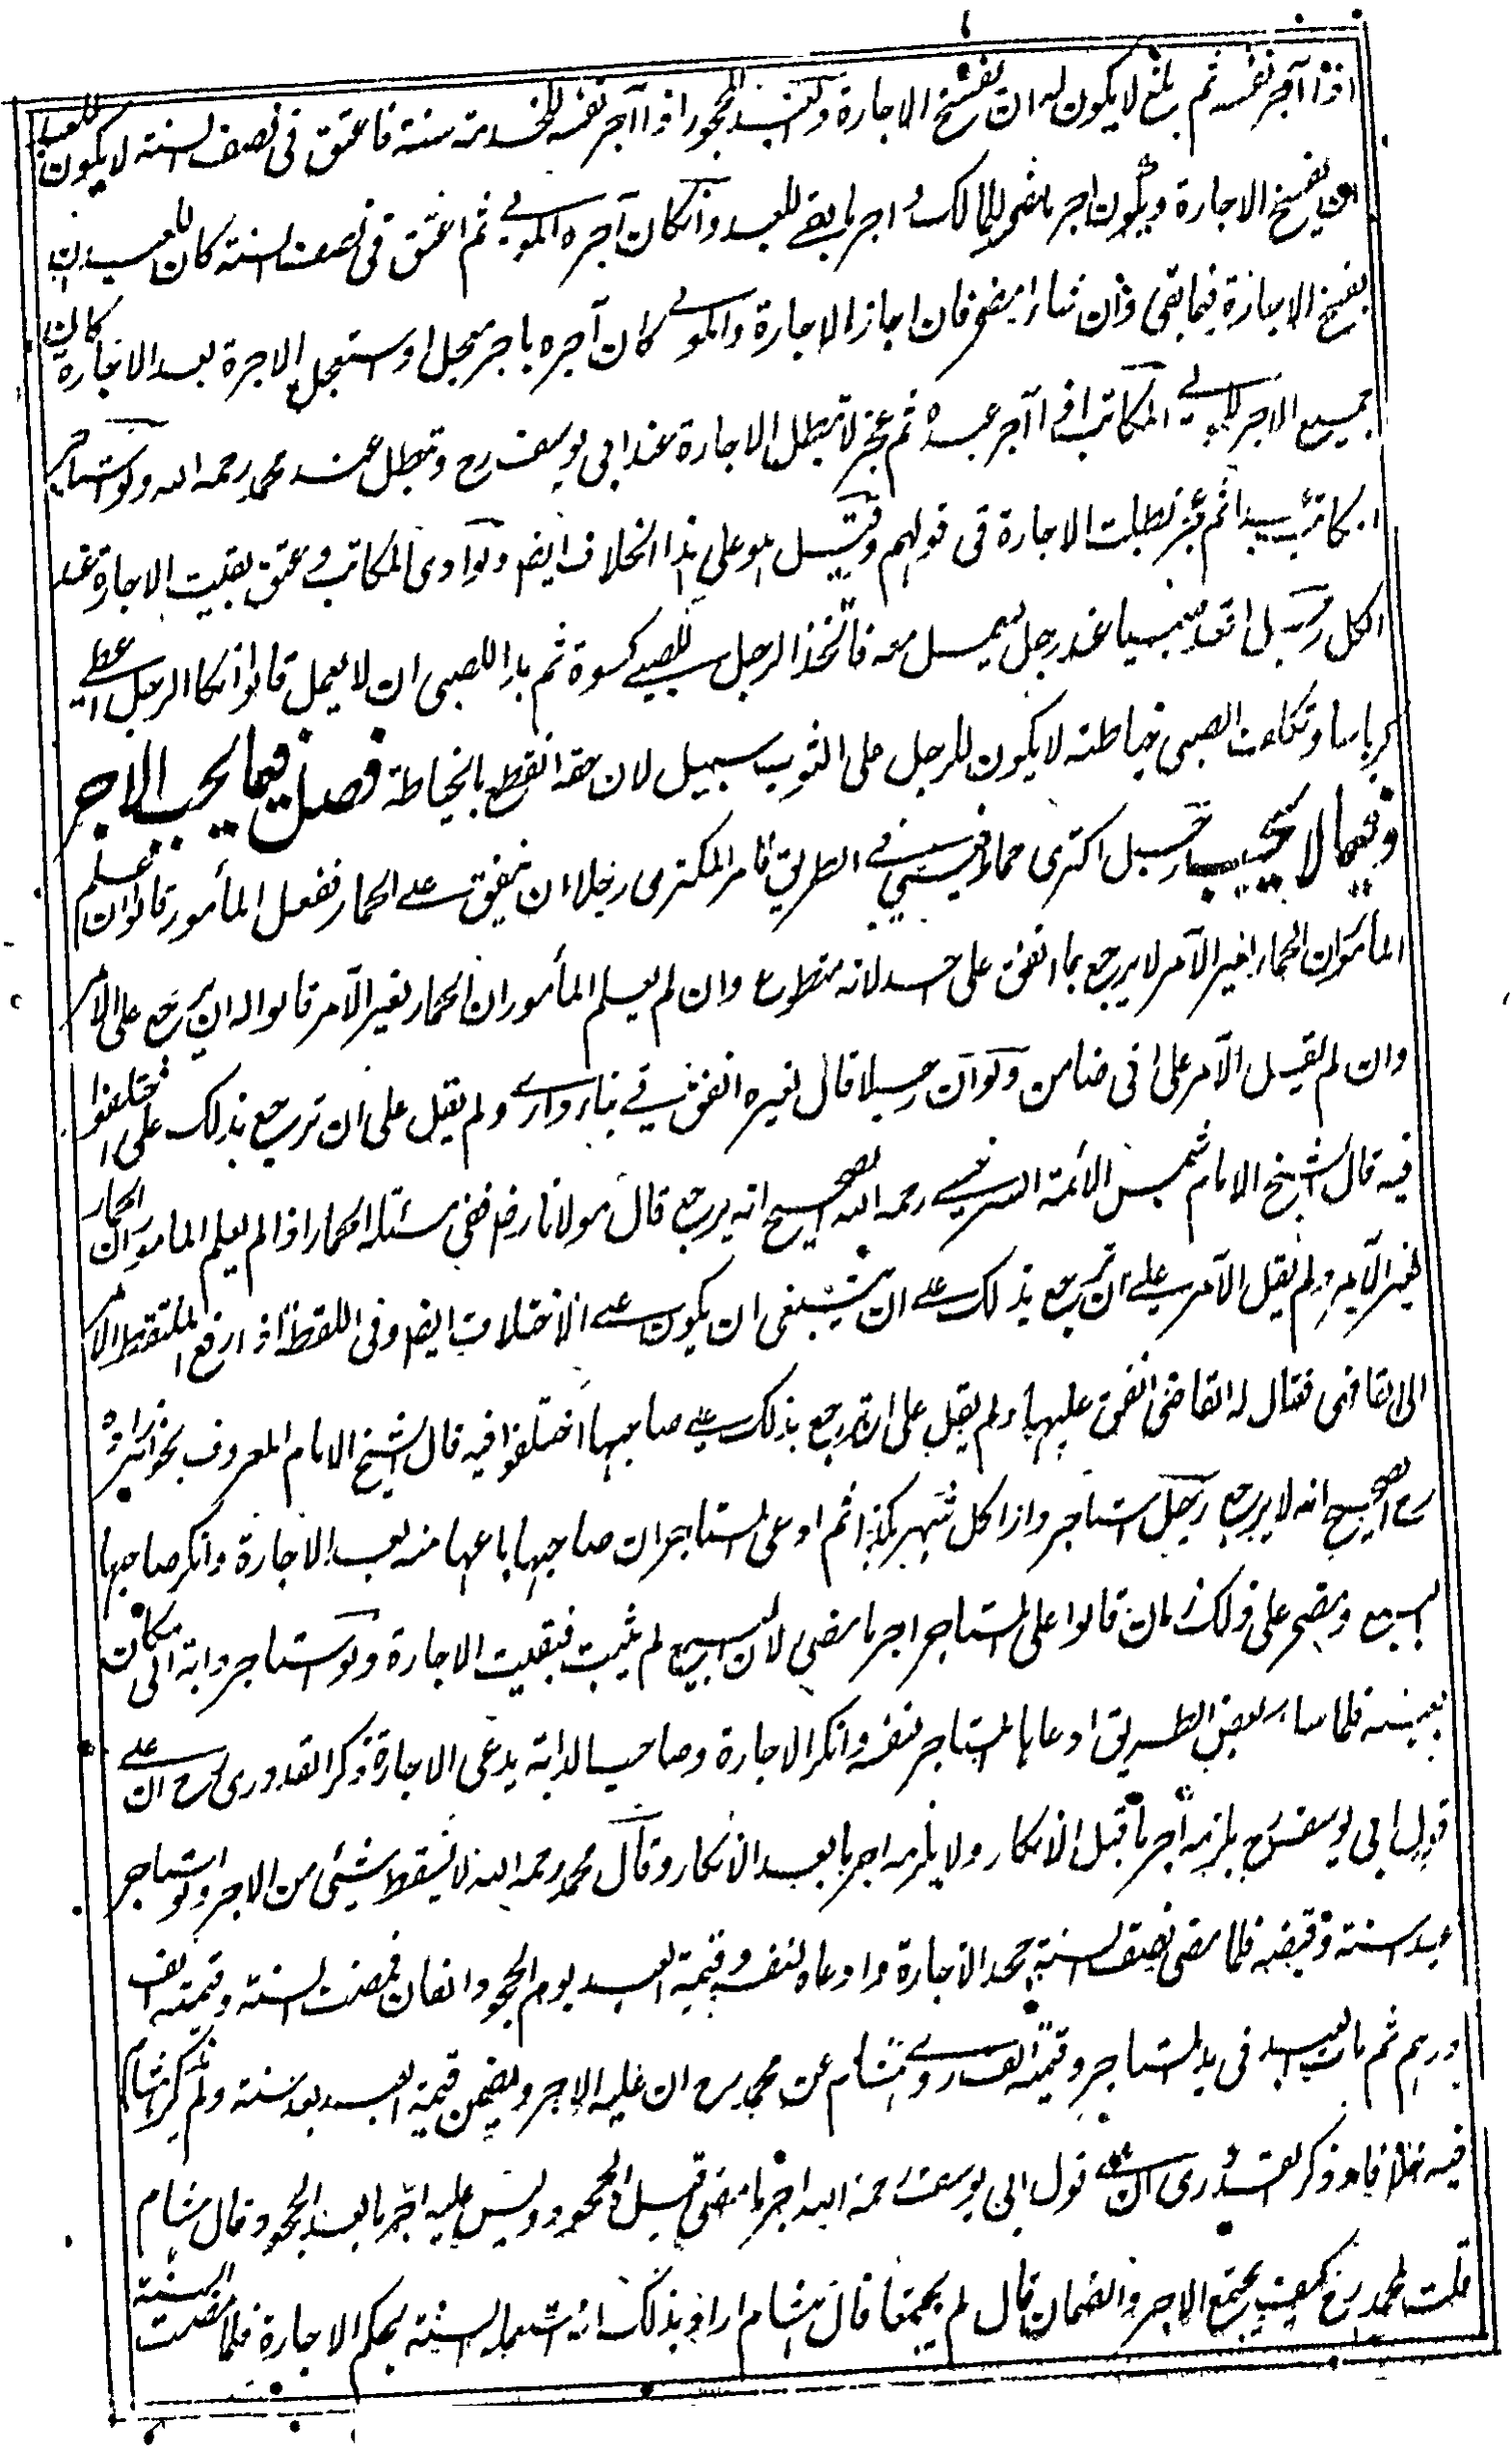 اذا آجر نفسه ثم بلغ لا يكون له ان يفسخ الاجارة وكالعبد المحجور اذا آجر نفسه للخدمة سنة فاعتق فى نصف السنة لا يكون للعبد
ان يفسخ الاجارة ويكون اجر ما مضى للمالك واجر ما بقى للعبد وان كان آجره المولى ثم اعتق فى نصف السنة كان للعبد ان
يفسخ الاجازة فيما بقى وان شاء امضى فان اجاز الاجارة والمولى كان آجره باجر معجل او استعجل الاجرة بعد الاجارة كان
جميع الاجر للمولى المكاتب اذا آجر عبده ثم عجز لا تبطل الاجارة عند ابى يوسف رح وتبطل عند محمد رحمه الله ولو استاجر
المكاتب عبدا ثم عجز بطلت الاجارة فى قولهم وقيل هو على هذا الخلاف ايضا ولو ادى المكاتب وعتق بقيت الاجارة عند
الكل رجل اقعد صبيا عند رجل ليعمل معه فاتخذ الرجل للصبى كسوة ثم بدا للصبى ان لا يعمل قالوا ان كان الرجل اعطى
كرباسا وتكلف الصبى خياطته لا يكون للرجل على الثوب سبيل لان حقه انقطع بالخياطة فصل فيما يجب الاجر
وفيما لا يجب رجل اكترى حمارا فعيى فى الطريق فامر المكترى رجلا ان ينفق على الحمار ففعل المأمور قالوا ان علم
المأمور ان الحمار لغير الآمر لا يرجع بما انفق على احد لانه متطوع وان لم يعلم المأمور ان الحمار لغير الآمر قالوا له ان يرجع على الآمر
وان لم يقل الآمر على انى ضامن ولو ان رجلا قال لغيره انفق فى بناء دارى ولم يقل على ان ترجع بذلك على اختلفوا
فيه قال الشيخ الامام شمس الائمة السرخسى رحمه الله الصحيح انه يرجع قال مولانا رض ففى مسئلة الحمار اذا لم يعلم المامور ان الحمار
لغير الآمر ولم يقل الآمر على ان ترجع بذلك على ان ينبغى ان يكون على الاختلاف ايضا وفى اللقطة اذا رفع الملتقط الامر
الى القاضى فقال له القاضى انفق عليها ولم يقل على ان ترجع بذلك على صاحبها اختلفوا فيه قال الشيخ الامام المعروف بخواهرزاده
رح الصحيح انه لا يرجع رجل استاجر دارا كل شهر بكذا ثم ادعى المستاجر ان صاحبها باعها منه بعد الاجارة وانكر صاحبها
البيع ومضى على ذلك زمان قالوا على المستاجر اجر ما مضى لان البيع لم يثبت فبقيت الاجارة ولو استاجر دابة الى مكان
بعينه فلما سار بعض الطريق ادعاها المستاجر لنفسه وانكر الاجارة وصاحب الدابة يدعى الاجارة ذكر القدورى رح ان على
قول ابى يوسف رح يلزمه اجر ما قبل الانكار ولا يلزمه اجر ما بعد الانكار وقال محمد رحمه الله لا يسقط شيئى من الاجر ولو استاجر
عبدا سنة وقبضه فلما مضى نصف السنة جحد الاجارة وادعاه لنفسه وقيمة العبد يوم الجحود الفان فمضت السنة وقيمته الف
درهم ثم مات العبد فى يد المستاجر وقيمته الف روى هشام عن محمد رح ان عليه الاجر ويضمن قيمة العبد بعد سنة ولم يذكر هشام
فيه خلافا وذكر القدورى ان على قول ابى يوسف رحمه الله اجر ما مضى قبل الجحود وليس عليه اجر ما بعد الجحود قال هشام
قلت لمحمد رح كيف يجتمع الاجر والضمان قال لم يجتمعا قال هشام اراد بذلك انه استعمله السنة بحكم الاجارة فلما مضت السنة